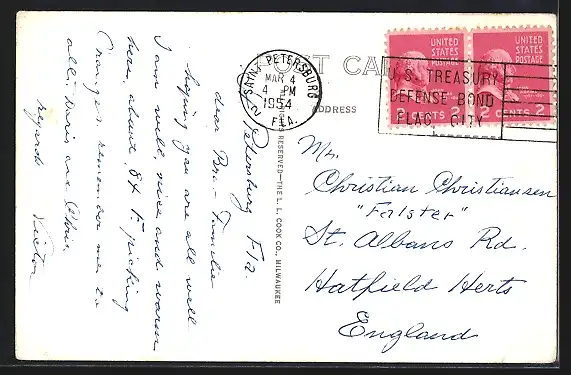 POST CARD
ADDRESS
SAINT PETERSBURG
MAR 4
4 PM
1954
FLA.
2
UNITED
STATES
POSTAGE
UNITED
STATES
POSTAGE
2 CENTS 2
U.S. TREASURY
DEFENSE BOND
FLAG CITY
RESERVED—THE L. L. COOK CO., MILWAUKEE
St Petersburg Fla.
dear Bro - Familie
hoping you are all well
I am well, nice and warm
here, about 84° picking
Oranges remember me to
all, Doris and Chris
regards Victor
Mr.
Christian Christiansen
"Falster"
St. Albans Rd.
Hatfield Herts
England